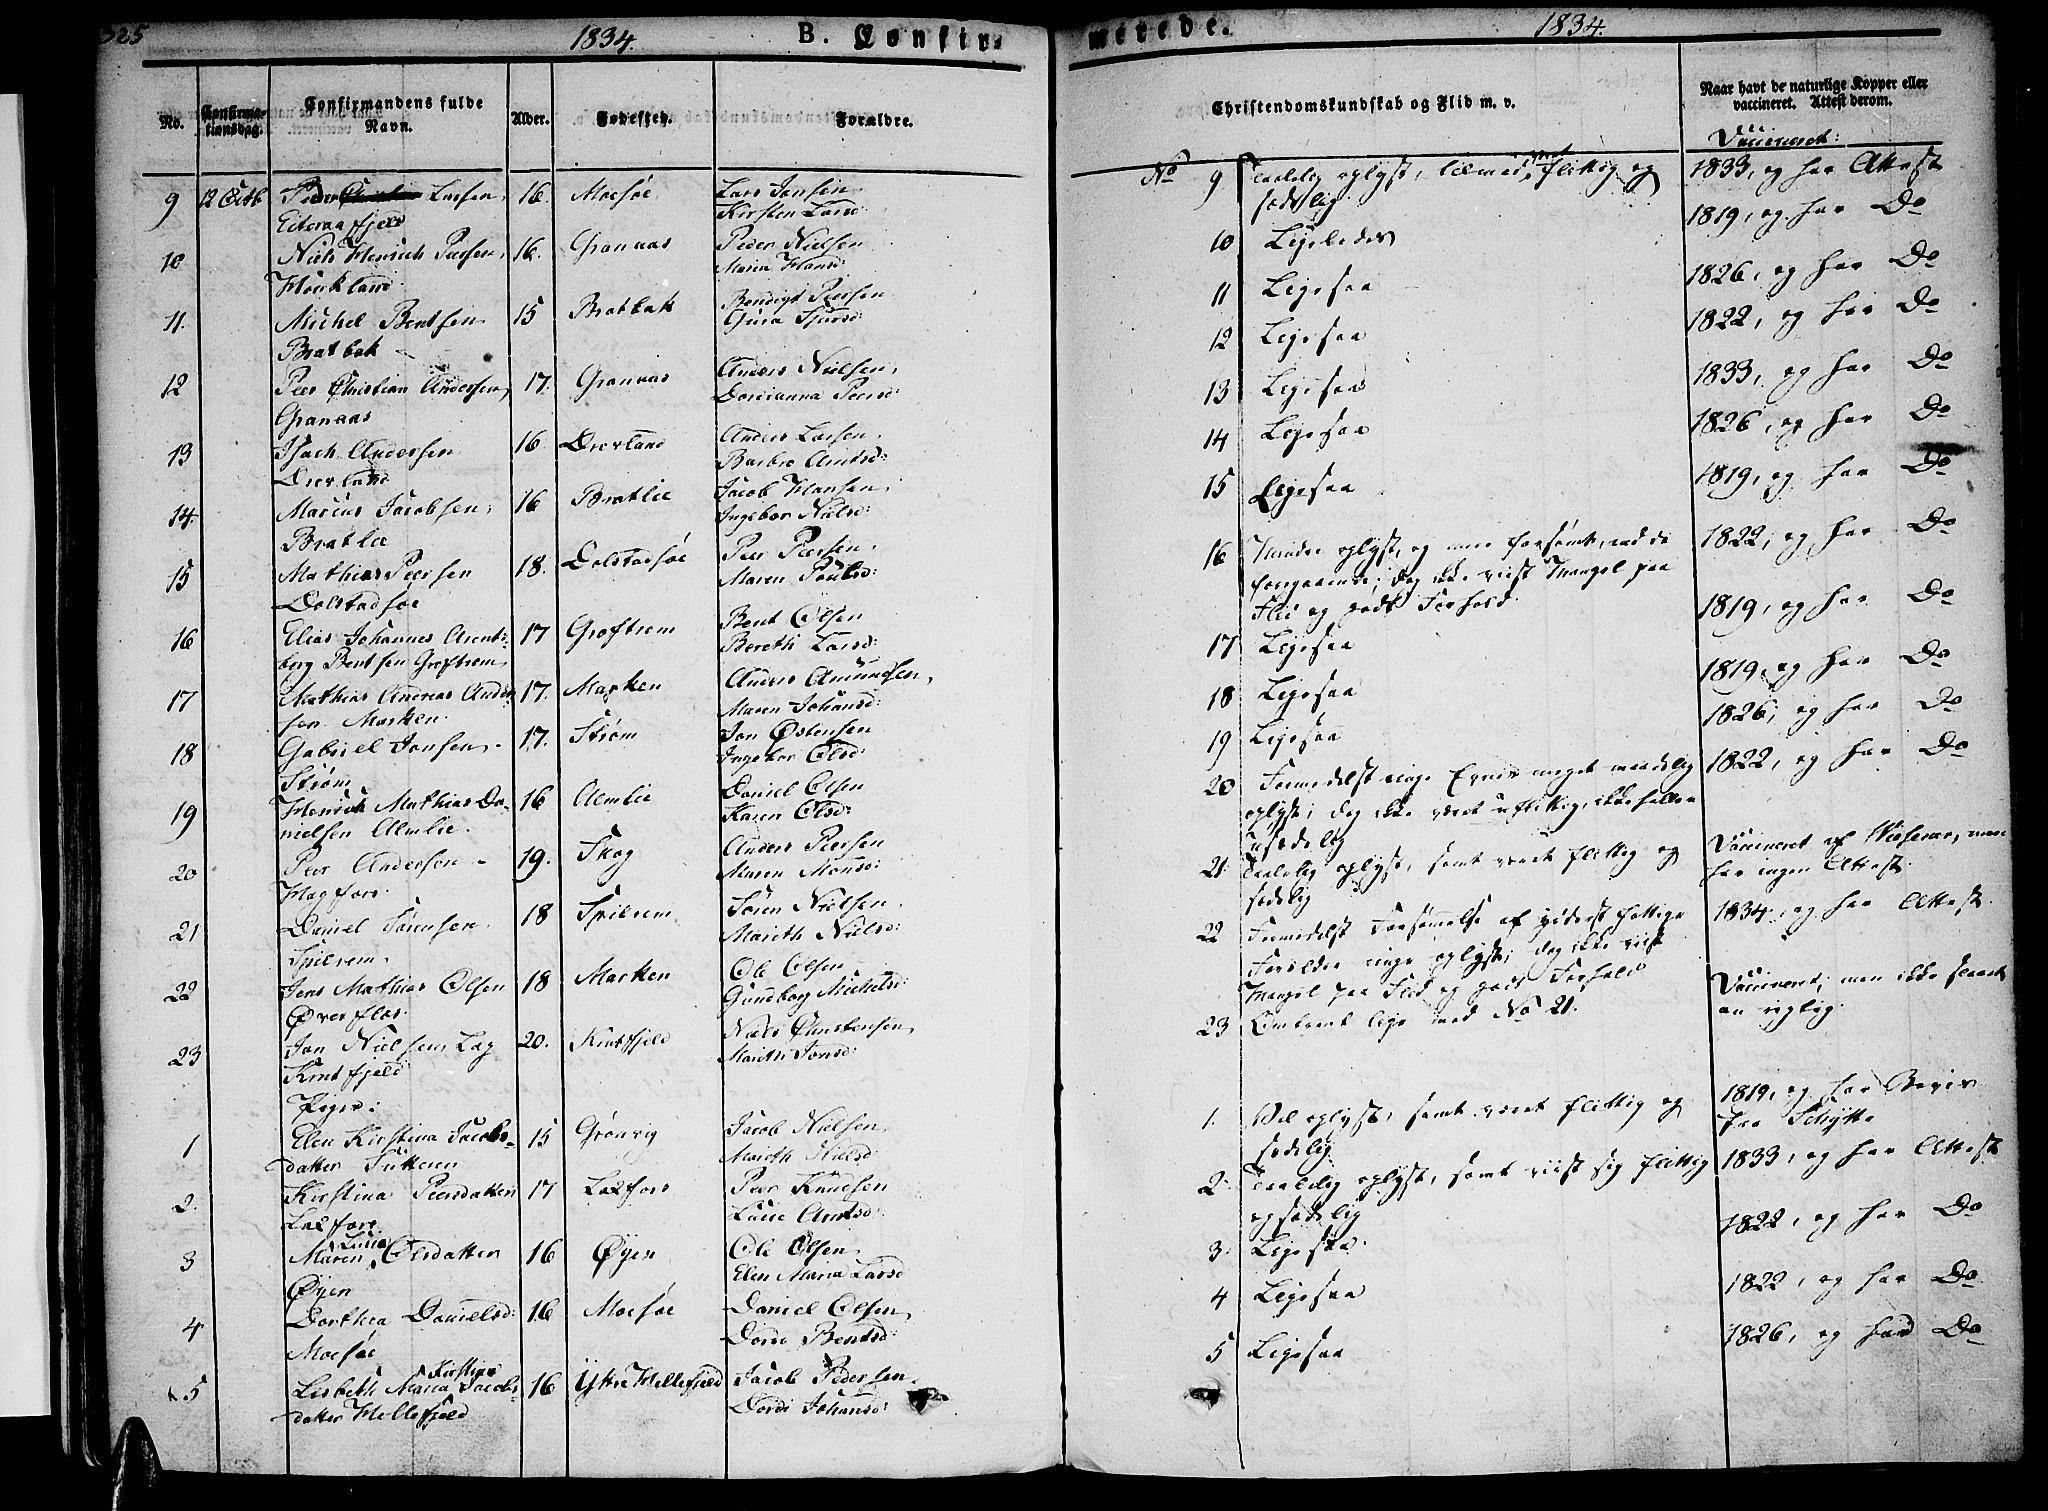 325
1834.
B. Confir-
No.
Confirma-
tionsdag.
Confirmandens fulde
Navn.
Alder.
Fødested.
Forældre.
9 12 Octb Peder Larsen 16. Moesøe Lars Jonsen
Eiteraafjeld Kirsten Larsd:
10 Niels Henrich Peersen, 16. Granaas Peder Nielsen
Houkland Maria Hansd:
11. Michel Bentsen 15 Bratbak Bendigt Peersen
Bratbak
12 Peer Christian Andersen, 17. Granaas Anders Nielsen,
Granaas Dordianna Peersd:
13 Isach Andersen 16 Drevland Anders Larsen.
Drevland Barbro Arntsd:
14. Marcus Jacobsen, 16 Bratlie Jacob Hansen,
Bratlie Ingebor Nielsd:
15 Mathias Peersen 18. Dolstadsøe Peer Peersen.
Dolstadsøe Maren Poulsd:
16 Elias Johannes Arent- 17 Grøftrem Bent Olsen
berg Bentsen Grøftrem, Bereth Larsd:
17 Mathias Andreas Ander- 17. Marken Anders Amundsen,
sen Marken. Maren Johansd:
18 Gabriel Jonsen, 17. Strøm Jon Østensen
Strøm Ingebor Olsd:
19 Henrich Mathias Da- 16 Almlie Daniel Olsen
nielsen Almlie. Karen Olsd:
20 Peer Andersen 19. Skog Anders Peersen
Hagfors. Maren Monsd:
21 Daniel Sørensen 18 Spilrem Søren Nielsen.
Spilrem. Mareth Nielsd:
22 Jens Mathias Olsen 18 Marken Ole Olsen
Gundborg Michelsd:
23 Jon Nielsen Lag 20. Kntfjeld Niels Christensen,
Kntfjeld Mareth Jonsd:
Piger:
1 Elen Kirstina Jacobs- 15 Grønvig Jacob Nielsen,
datter Mareth Nielsd:
2. Kirstina Peersdatter 17 Laxfors Peer Knudsen
Laxfors. Lucie Arntsd:
3 Maren Lucia Olsdatter 16 Øyen Ole Olsen,
Øyen Elen Maria Larsd
4 Dorthea Danielsd: 16 Moesøe Daniel Olsen,
Moesøe Bentsd:
5 Lisbeth Maria Kirstine Jacobs- 16 Yttre Hellefjeld Jacob Pedersen.
datter Hellefjeld Dordi Johansd:
merede.
1834.
Christendomskundskab og Flid m. v.
Naar havt de naturlige Kopper eller
vaccineret. Attest derom.
Vaccineret:
No 9 Taalelig oplyst, tilmed været flittig og 1833, og har Attest
sædelig
10 Ligeledes 1819, og har Do
11 Ligesaa 1826, og har Do
12 Ligesaa 1822, og har Do
13 Ligesaa 1833, og har Do
14 Ligesaa 1826, og har Do
15 Ligesaa 1819, og har Do
16 Mindre oplyst, og mere forsømt, end de 1822, og har Do
foregaaende; dog ikke viist Mangel paa
Flid og godt Forhold.
17 Ligesaa 1819, og har Do
18 Ligesaa 1819, og har Do
19 Ligesaa 1826, og har Do
20 Formedelst ringe Evner meget maadelig 1822, og har Do
oplyst; dog ikke været uflittig, ikke heller
usædelig
21 Taalelig oplyst, samt været flittig og Vaccineret af men
sædelig har ingen Attest.
22 Formedelst Forsømmelse af yderst fattige 1834, og har Attest.
Forældre ringe oplyst; dog ikke viist
Mangel paa Flid og godt Forhold
23 Omtrent lige med No 21. Vaccineret, men ikke
rigtig.
1. Vel oplyst, samt været flittig og 1819, og har Beviis
sædelig fra Schytte
2 Taalelig oplyst, samt viist sig flittig 1833, og har Attest
og sædelig
3 Ligesaa. 1822, og har Do
4 Ligesaa 1822, og har Do
5 Ligesaa 1826, og har Do